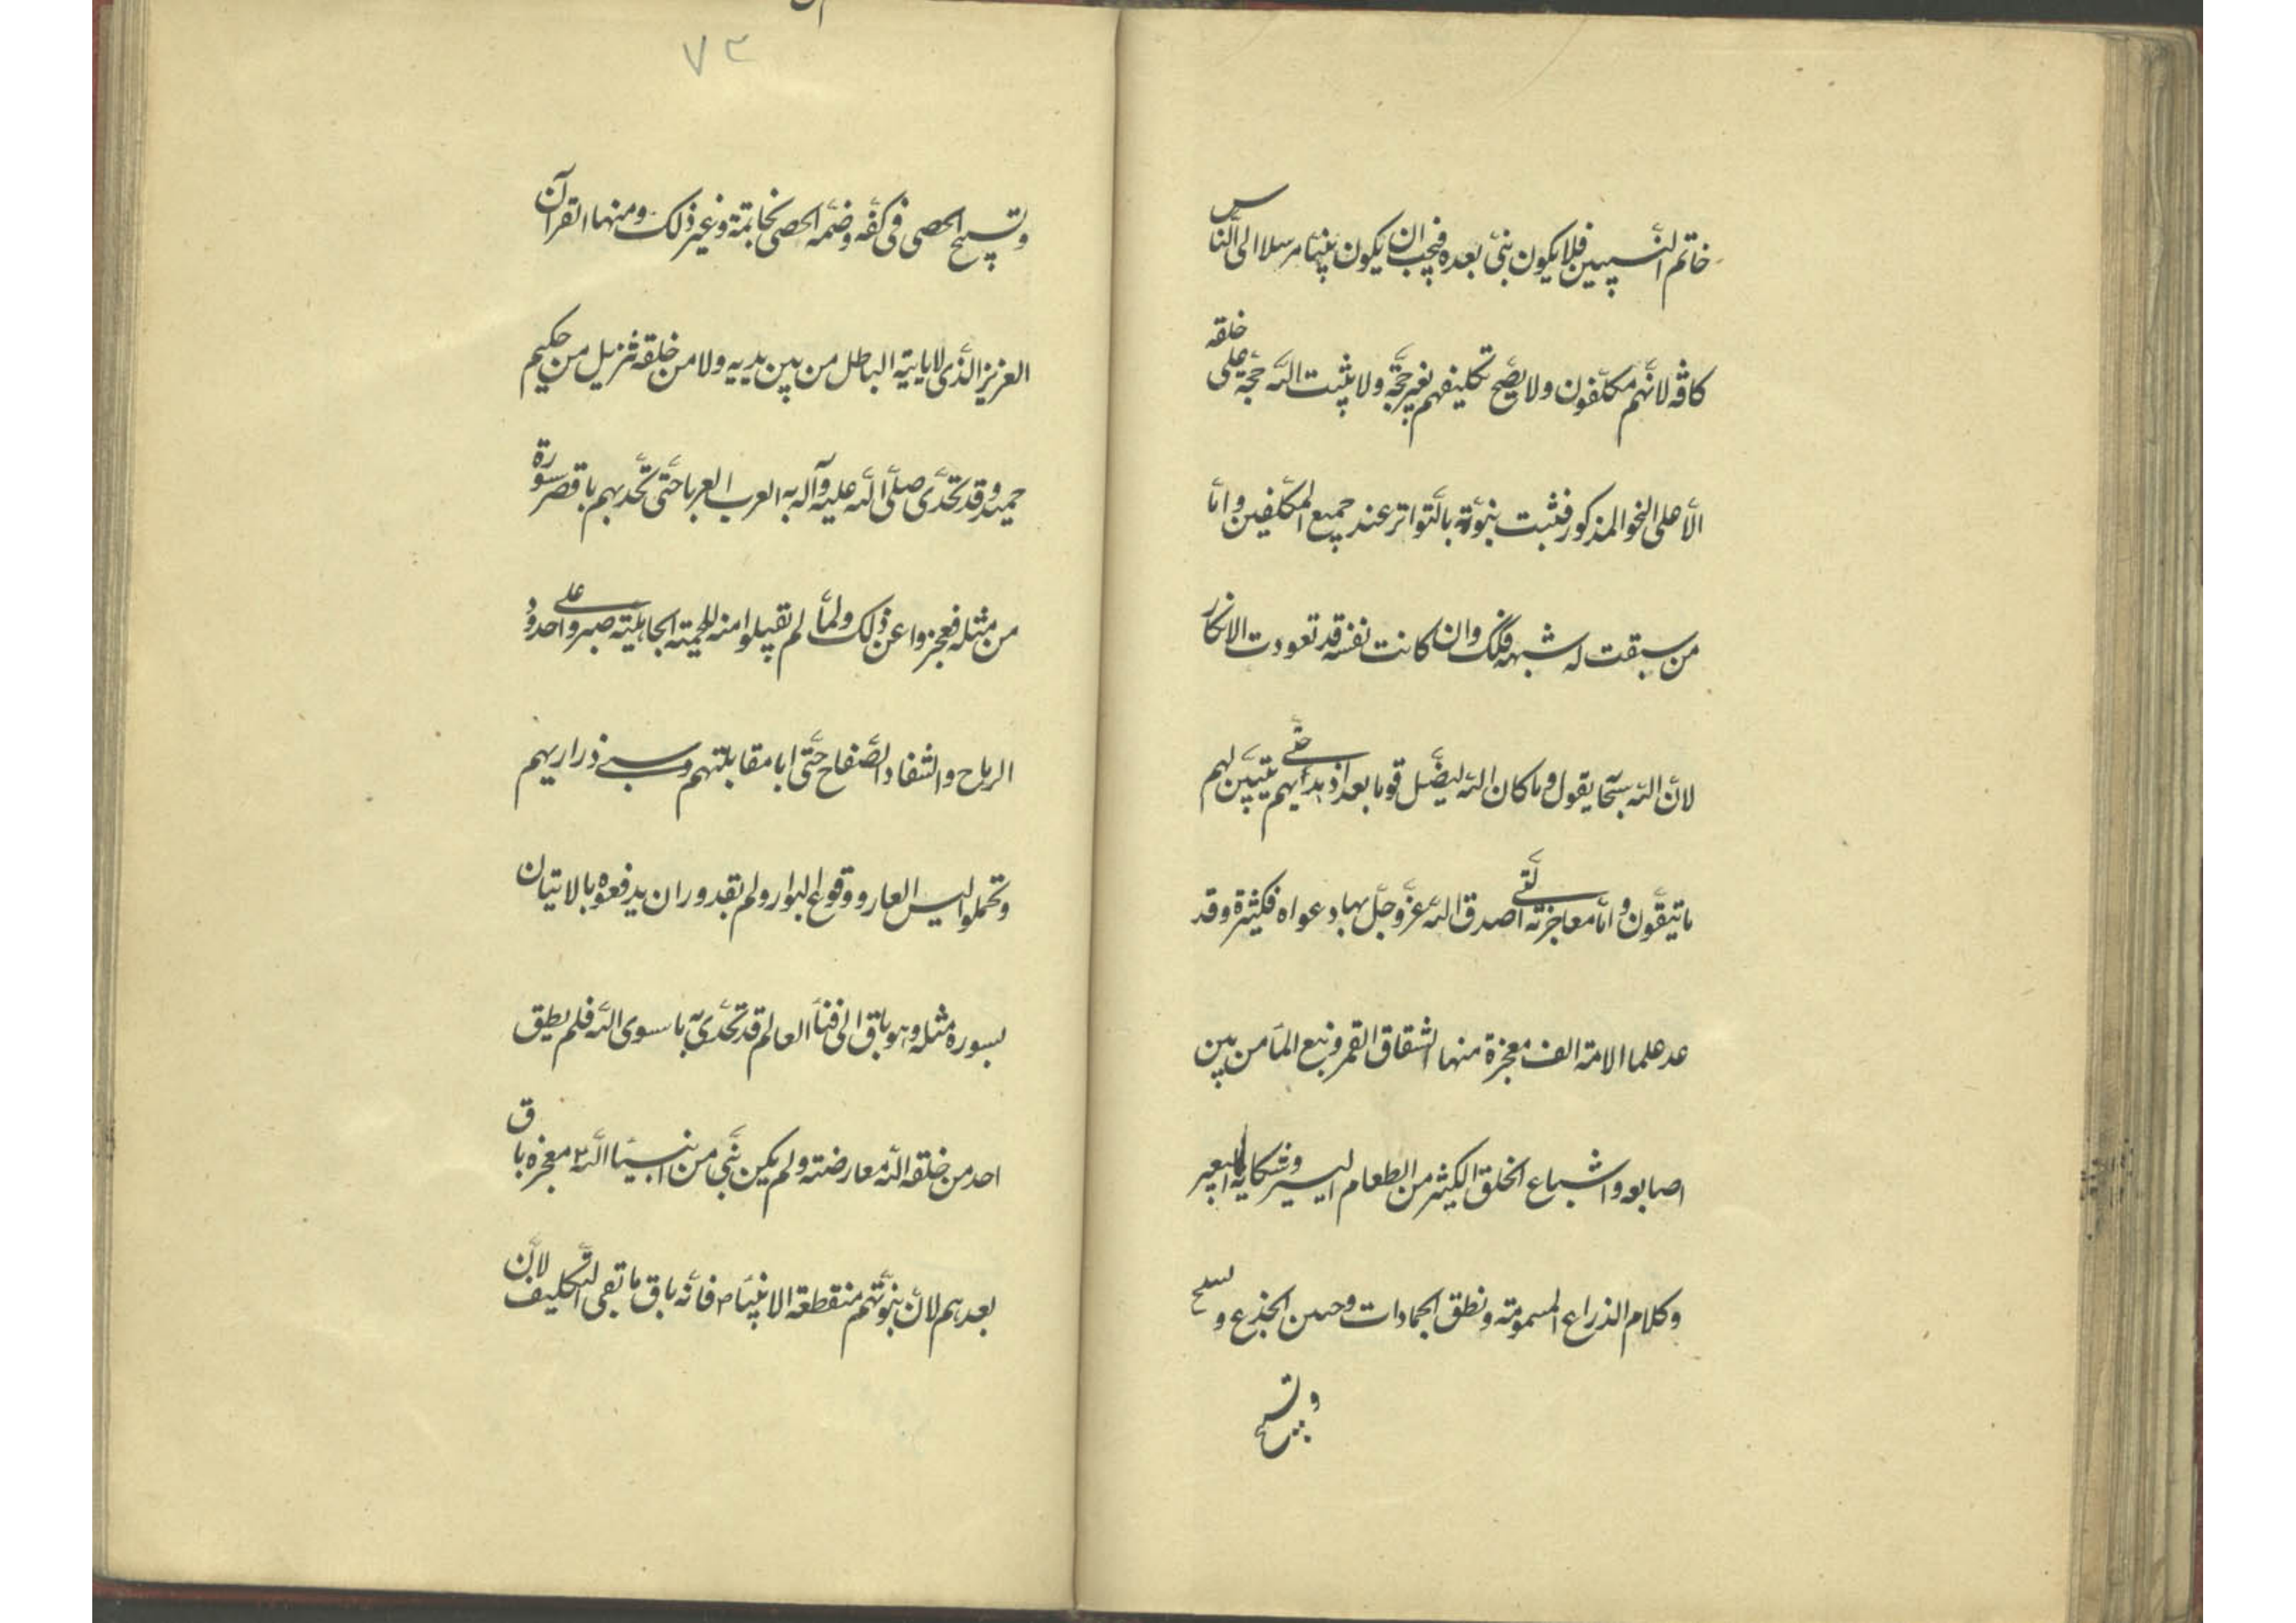 خاتم النبيين فلا يكون نبي بعده فيجب ان يكون نبينا مرسلا الى الناس
كافة لانهم مكلفون ولا يصح تكليفهم بغير حجة ولا يثبت الله حجة على خلقه
الا على النحو المذكور فثبت نبوته بالتواتر عند جميع المكلفين واما
من سبقت له شبهة فكك وان كانت نفسه قد تعودت الانكار
لان الله سبحا يقول وما كان الله ليضل قوما بعد اذ هديهم حتى يتبين لهم
ما يتقون واما معاجزته التى اصدق الله عز وجل بها دعواه فكثيرة وقد
عد علما الامة الف معجزة منها انشقاق القمر ونبع الماء من بين
اصابعه واشباع الخلق الكثير من الطعام اليسير وشكاية البعير
وكلام الذراع المسمومة ونطق الجمادات وحنين الجذع و
وتسبيح
٧٣
وتسبيح الحصى فى كفه وضمه الحصى بخاتمة وغير ذلك ومنها القرآن
العزيز الذى لا ياتيه الباطل من بين يديه ولا من خلفه تنزيل من حكيم
حميد وقد تحدى صلى الله عليه وآله به العرب العربا حتى تحديهم باقصر سورة
من مثله فعجزوا عن ذلك ولما لم يقبلوا منه للحمية الجاهلية صبروا على حدود
الرماح والشفاد الصفاح حتى ابا مقابلتهم وسبى ذراريهم
وتحملوا لبس العار ووقوع البوار ولم يقدوران يدفعوه بالاتيان
بسورة مثله وهو باق الى فناء العالم قد تحدى به ما سوى الله فلم يطق
احد من خلقه الله معارضته ولم يكن نبى من انبيا الله معجزه باق
بعدهم لان نبوتهم منقطعة الا نبينا ص فانه باق ما بقى التكليف لان